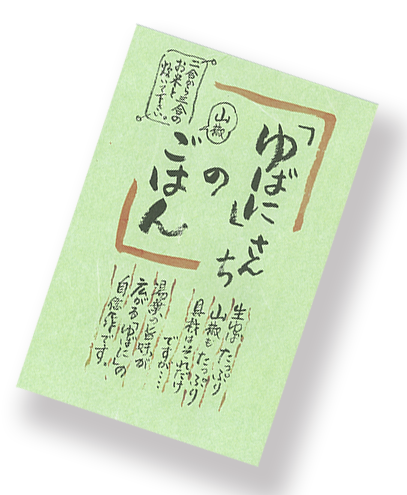 「ゆばに」さんち
の
ごはん
山椒
二合から三合の
お米と
炊いて下さい。
生湯葉たっぷり
山椒もたっぷり
具材はそれだけ
ですが…
湯葉の旨味が
広がる「ゆばに」の
自信作です。